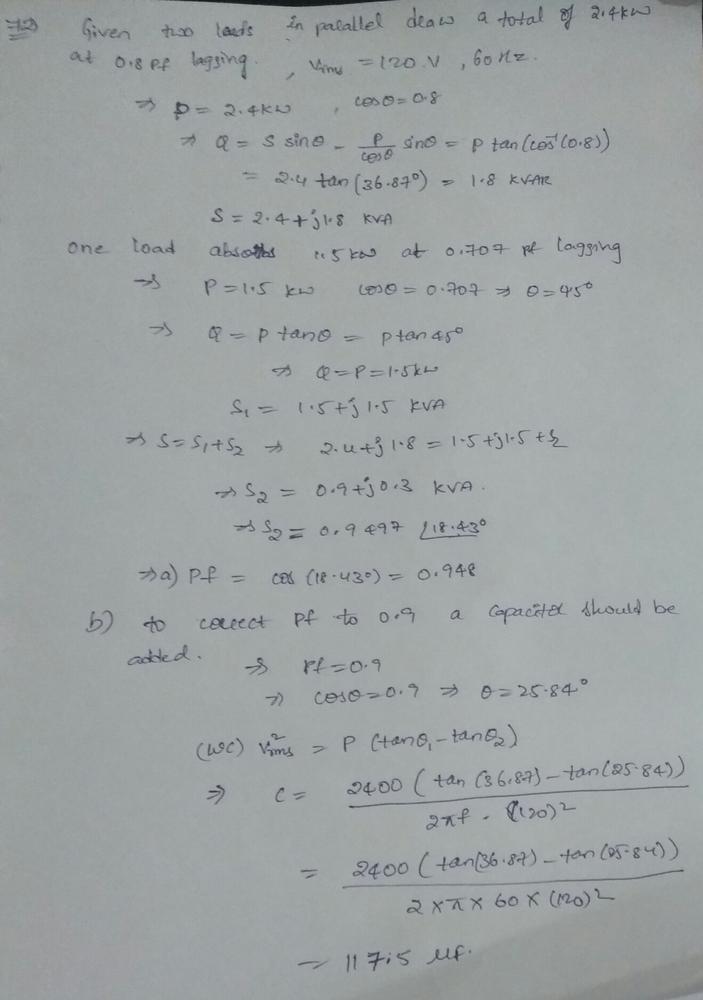 72) Given two loads in parallel draw a total of 2.4kW
at 0.8 Pf lagging. , Vrms = 120.V , 60 Hz.
⇒ P = 2.4KW , cosθ = 0.8
⇒ Q = S sinθ = P/cosθ sinθ = P tan(cos⁻¹(0.8))
= 2.4 tan(36.87°) = 1.8 KVAR
S = 2.4 + j1.8 KVA
one load absorbs 1.5 kW at 0.707 pf lagging
⇒ P = 1.5 kW cosθ = 0.707 ⇒ θ = 45°
⇒ Q = P tanθ = P tan 45°
⇒ Q = P = 1.5kW
S₁ = 1.5 + j1.5 KVA
⇒ S = S₁ + S₂ ⇒ 2.4 + j1.8 = 1.5 + j1.5 + S₂
⇒ S₂ = 0.9 + j0.3 KVA.
⇒ S₂ = 0.9497 ∠18.43°
⇒ a) Pf = cos (18.43°) = 0.948
b) to correct Pf to 0.9 a capacitor should be
added. ⇒ Pf = 0.9
⇒ cosθ = 0.9 ⇒ θ = 25.84°
(WC) V²rms = P (tanθ₁ - tanθ₂)
⇒ C = 2400 ( tan (36.87) - tan(25.84))
2πf . (120)²
= 2400 ( tan(36.87) - tan(25.84))
2 × π × 60 × (120)²
= 117.5 μf.